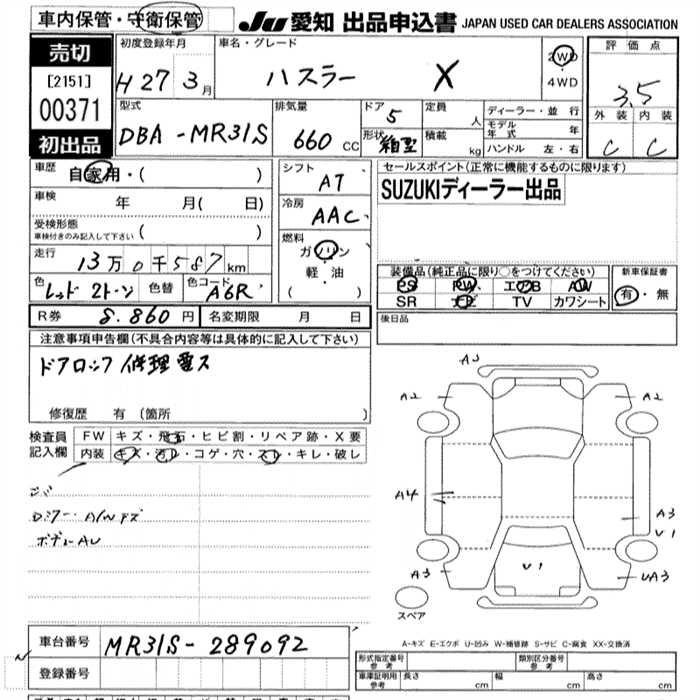 車内保管・守衛保管
JU 愛知 出品申込書 JAPAN USED CAR DEALERS ASSOCIATION
売切
[2151]
00371
初出品
初度登録年月
H 27 3月
車名・グレード
ハスラー X
2WD
4WD
評価点
3.5
外装 内装
C C
型式
DBA-MR31S
排気量
660 CC
ドア 5
形状 箱型
定員 人
積載 kg
ディーラー・並行
モデル年式 年
ハンドル 左・右
車歴 自家用・( )
車検 年 月( 日)
受検形態
車検付きのみ記入して下さい ( )
走行 13万0千587km
色 レッド2トーン 色替 色コード A6R
シフト AT
冷房 AAC
燃料 ガソリン
軽・油
( )
セールスポイント(正常に機能するものに限ります)
SUZUKIディーラー出品
装備品(純正品に限り○をつけてください)
PS PW エアB AW
SR ナビ TV カワシート
新車保証書
有・無
R券 8.860円 名変期限 月 日
後日品
注意事項申告欄(不具合内容等は具体的に記入して下さい)
ドアロック修理要ス
修復歴 有(箇所 )
検査員
記入欄
FW キズ・飛石・ヒビ割・リペア跡・X要
内装 キズ・汚レ・コゲ・穴・スレ・キレ・破レ
ボデーAU
A3
A2 A2
A4
A3
V1
V1
A3 UA3
スペア
A-キズ E-エクボ U-凹み W-補修跡 S-サビ C-腐食 XX-交換済
車台番号 MR31S-289092
登録番号
形式指定番号
参考
類別区分番号
参考
車庫証明用
参考
長さ cm 幅 cm 高さ cm